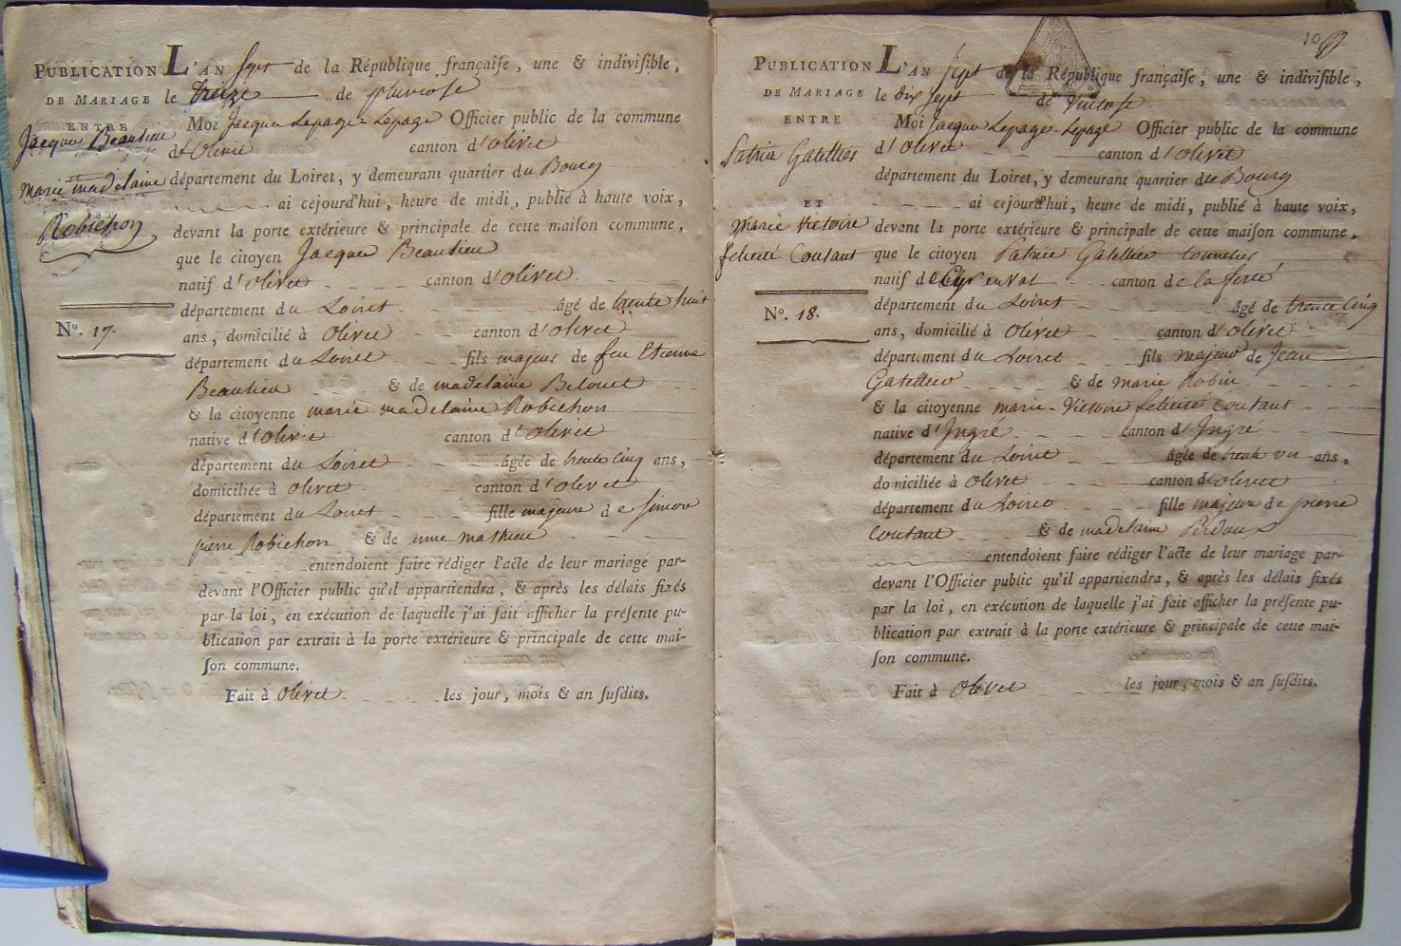 PUBLICATION
DE MARIAGE
ENTRE
Jacques Beaulieu
marie madelaine
Robichon
N°. 17.
L'AN Sept de la République françaiſe, une & indiviſible,
le treize de pluviose
Moi Jacques Lepage-Lepage Officier public de la commune
d'Olivet canton d'Olivet
département du Loiret, y demeurant quartier du Bourg
ai cejourd'hui, heure de midi, publié à haute voix,
devant la porte extérieure & principale de cette maiſon commune,
que le citoyen Jacques Beaulieu
natif d'Olivet canton d'Olivet
département du Loiret âgé de trente huit
ans, domicilié à Olivet canton d'Olivet
département du Loiret fils majeur de feu Etienne
Beaulieu & de madelaine
& la citoyenne marie madelaine Robichon
native d'Olivet canton d'Olivet
département du Loiret âgée de trente cinq ans,
domiciliée à Olivet canton d'Olivet
département du Loiret fille majeure de Simon
pierre Robichon & de anne mathieu
entendoient faire rédiger l'acte de leur mariage par-
devant l'Officier public qu'il appartiendra, & après les délais fixés
par la loi, en exécution de laquelle j'ai fait afficher la préſente pu-
blication par extrait à la porte extérieure & principale de cette mai-
ſon commune.
Fait à Olivet les jour, mois & an ſuſdits.
10
PUBLICATION
DE MARIAGE
ENTRE
Patrice Gatellier
ET
Marie Victoire
felicité Coutant
N°. 18.
L'AN Sept de la République françaiſe, une & indiviſible,
le dix sept de
Moi Jacques Lepage-Lepage Officier public de la commune
d'Olivet canton d'Olivet
département du Loiret, y demeurant quartier du Bourg
ai cejourd'hui, heure de midi, publié à haute voix,
devant la porte extérieure & principale de cette maiſon commune,
que le citoyen Patrice Gatellier tonnelier
natif de Cyr en val canton de la ferté
département du Loiret âgé de trente cinq
ans, domicilié à Olivet canton d'Olivet
département du Loiret fils majeur de Jean
Gatellier & de marie Robin
& la citoyenne marie-Victoire felicité Coutant
native d'Ingré canton d'Ingré
département du Loiret âgée de trente un ans,
domiciliée à Olivet canton d'Olivet
département du Loiret fille majeure de pierre
Coutant & de madelaine
entendoient faire rédiger l'acte de leur mariage par-
devant l'Officier public qu'il appartiendra, & après les délais fixés
par la loi, en exécution de laquelle j'ai fait afficher la préſente pu-
blication par extrait à la porte extérieure & principale de cette mai-
ſon commune.
Fait à Olivet les jour, mois & an ſuſdits.